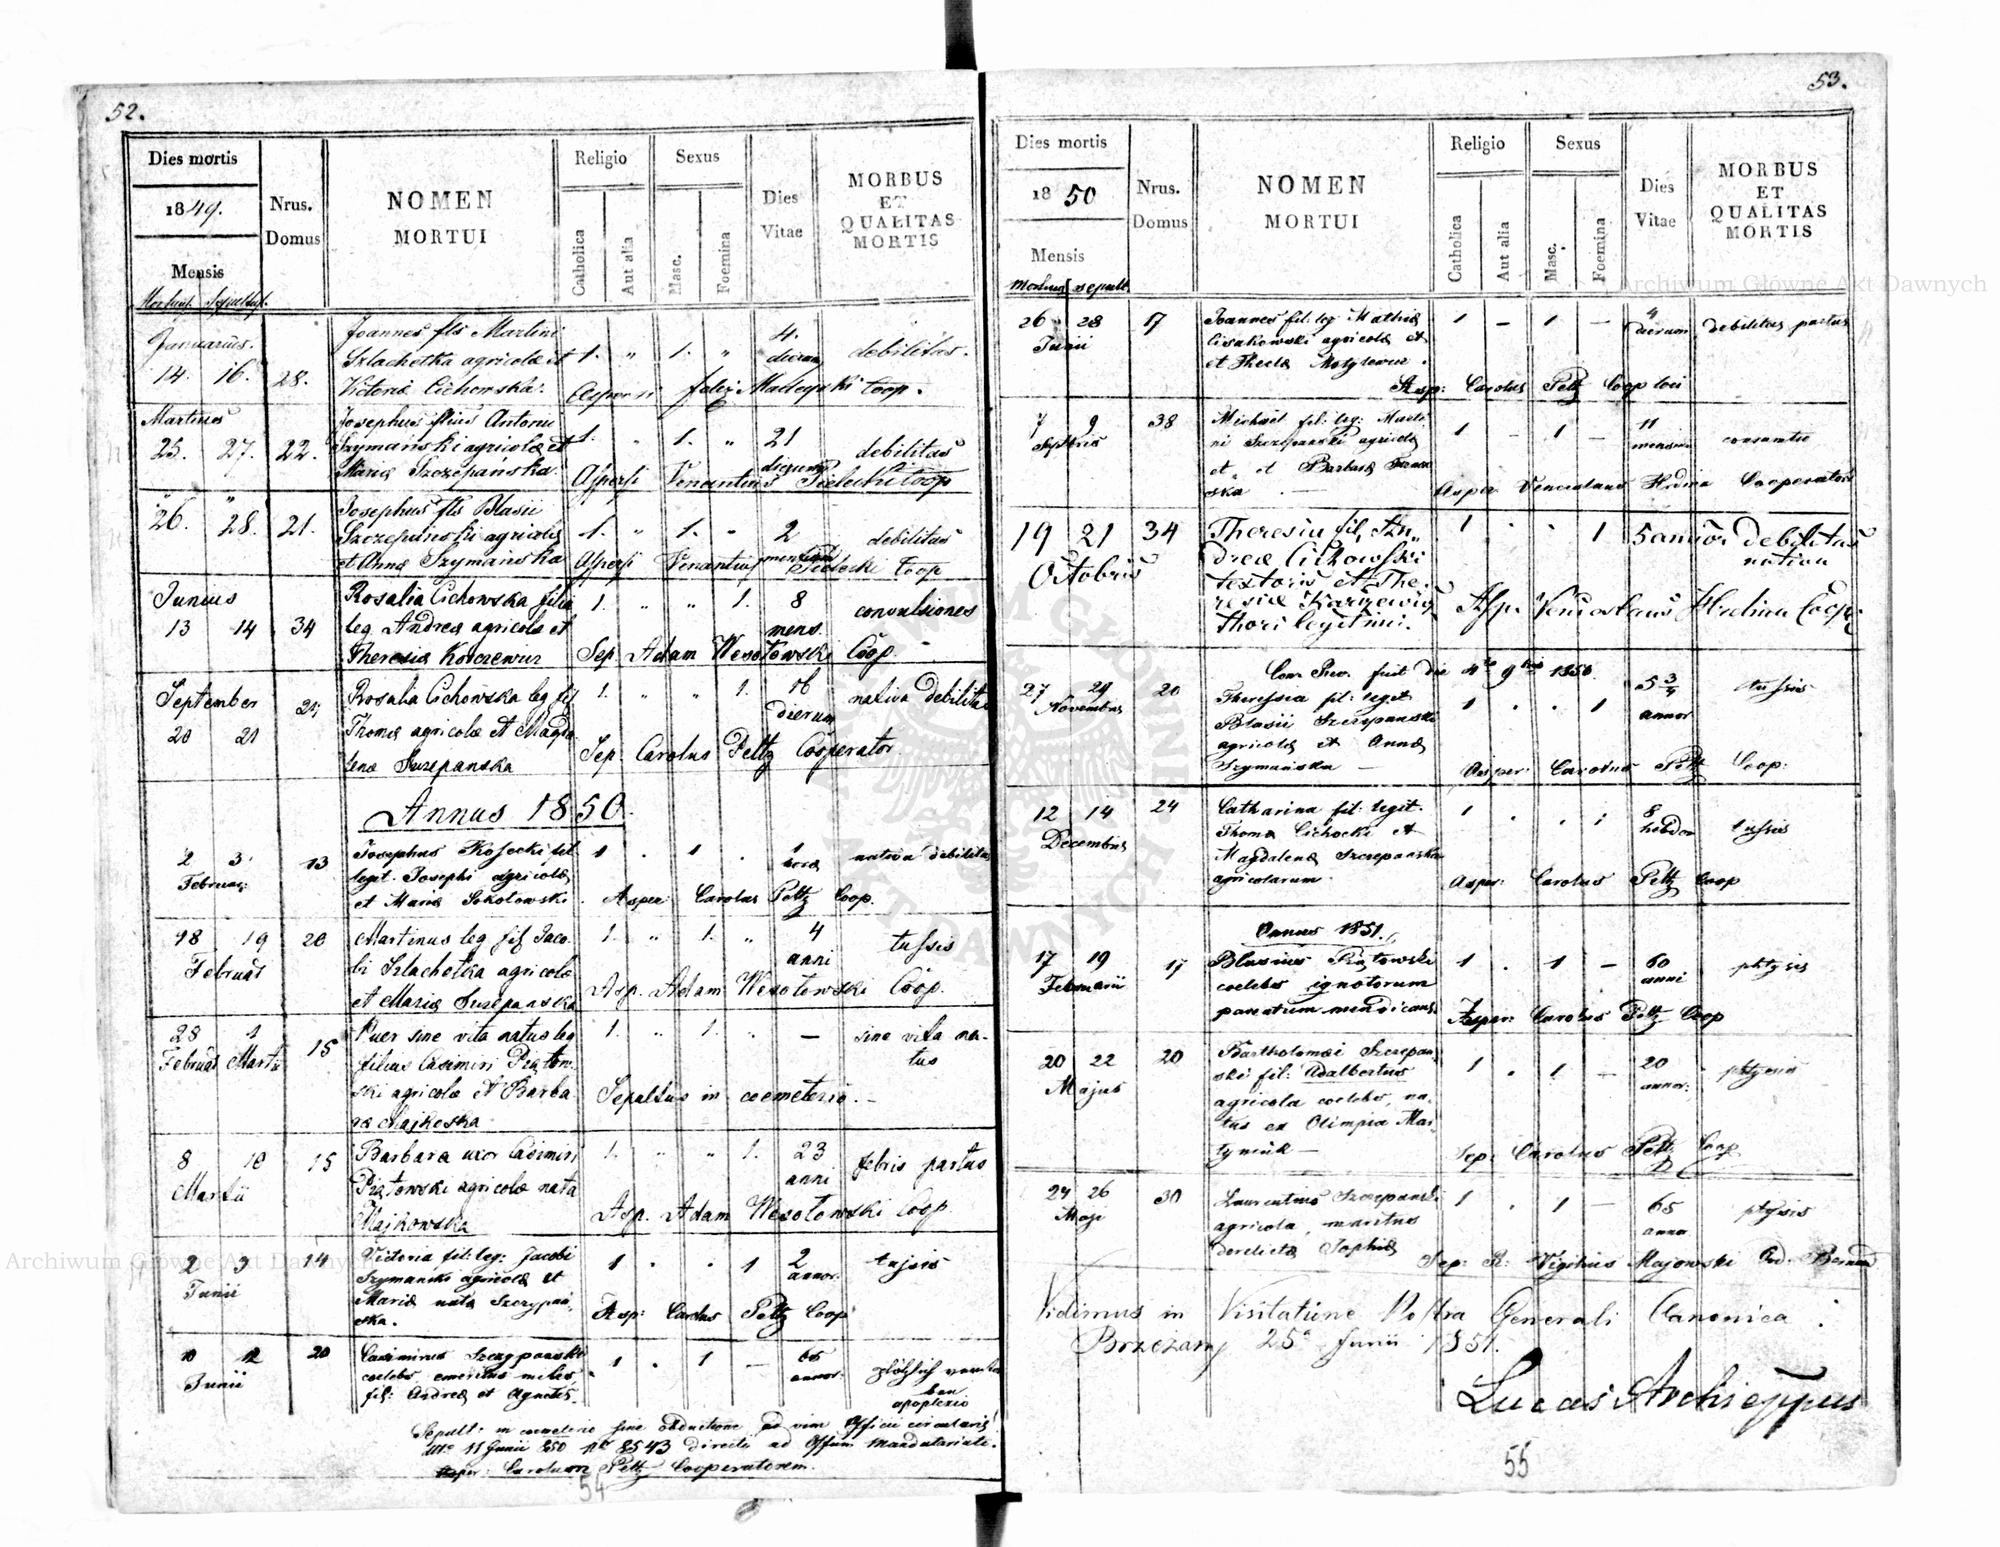 52.
Dies mortis
1849.
Mensis
Nrus.
Domus
NOMEN
MORTUI
Religio
Catholica
Aut alia
Sexus
Masc.
Foemina
Dies
Vitae
MORBUS
ET
QUALITAS
MORTIS
Januarius.
14. 16. 28.
Joannes fls Martini
Szlachetka agricolæ et
Victoriæ Cichowska.
1. " 1. "
4.
dierum
debilitas.
Aspersi Felix Coop.
Martius
25. 27. 22.
Josephus filius Antonii
Szymański agricolæ et
Mariæ Szczepanska.
1. " 1. "
21
dierum
debilitas
Aspersi Venantius Coop
26. 28. 21.
Josephus fls Blasii
Szczepański agricolæ
et Annæ Szymańska
1. " 1. "
2
mensium
debilitas
Aspersi Venantius Coop
Junius
13 14 34
Rosalia Cichowska filia
leg. Andreæ agricolæ et
Theresiæ
1. " " 1.
8
mens.
convulsiones
Sep. Adam Wesołowski Coop.
September
20 21
Rosalia Cichowska leg fil
Thomæ agricolæ et Magda
lenæ Szczepanska
1. " " 1.
16
dierum
nativa debilitas
Sep. Carolus Peltz Cooperator.
Annus 1850.
2 3 13
Februar:
Josephus Kosecki fil
legit. Josephi agricolæ
et Mariæ Sokołowski
1 . 1 .
1
hora
nativa debilitas
Asper Carolus Peltz Coop.
18 19 20
Februar
Martinus leg fil Jaco-
bi Szlachetka agricolæ
et Mariæ Szczepanska
1. " 1. "
4
anni
tussis
Asp. Adam Wesołowski Coop.
28 1 15
Februar Martii
Puer sine vita natus leg
filius Casimiri Piątow-
ski agricolæ et Barba
ræ
1. " 1. " —
sine vita na-
tus
Sepultus in coemeterio. —
8 10 15
Martii
Barbara uxor Casimiri
Piątowski agricolæ nata
Majkowska
1. " " 1.
23
anni
febris partus
Asp. Adam Wesołowski Coop.
2 3 14
Junii
Victoria fil: leg: Jacobi
Szymanski agricolæ et
Mariæ nata Szczepań-
ska.
1 . . 1
2
annor.
tussis
Asp: Carolus Peltz Coop
10 12 20
Junii
Casimirus Szczepanski
coelebs emeritus miles,
fil: Andreæ et Agnetis.
1 . 1 —
65
annor:
apoplexio
Sepult: in cemeterio sine obductione ad vim Officii circularis
dtto 11 Junii 850 Nro 8543 directi ad Offium Mandatariale.
Asper: Carolum Peltz Cooperatorem.
54
53.
Dies mortis
1850
Mensis
mortuus sepult.
Nrus.
Domus
NOMEN
MORTUI
Religio
Catholica
Aut alia
Sexus
Masc.
Foemina
Dies
Vitae
MORBUS
ET
QUALITAS
MORTIS
26 28 17
Junii
Joannes fil: leg: Mathiæ
agricolæ et
et Theclæ
1 — 1 —
4
dierum
debilitas partus
Asp: Carolus Peltz Coop loci
7 9 38
Septbris
Michael fil: leg: Marti
ni Szczepanski agricolæ
et Barbaræ
ska. —
1 — 1 —
11
mensium
Asper Venceslaus Hrdina Cooperator
19 21 34
Octobris
Theresia fil, An-
dreæ Cichowski
textoris et The-
resiæ
thori legitimi.
1 . . 1
5 annor debilitas
nativa
Asp. Venceslaus Hrdina Coop:
Can. Rev. fuit die 4ta 9bris 1850.
27 29 20
Novembris
Theressia fil: legit
Blasii Szczepanski
agricolæ et Annæ
Szymańska —
1 . . 1
5 3/4
annor
tussis
Asper: Carolus Peltz Coop:
12 14 24
Decembris
Catharina fil: legit.
Thomæ Cichocki et
Magdalenæ Szczepanska
agricolarum.
1 . . 1
8
hebdom
tussis
Asper: Carolus Peltz Coop
Annus 1851.
17 19 17
Februarii
Blasius Piątowski
coelebs ignotorum
parentum mendicans.
1 . 1 —
60
anni
phtysis
Asper: Carolus Peltz Coop
20 22 20
Majus
Bartholomæi Szczepań-
ski fil: Adalbertus
agricola coelebs, na-
tus ex Olimpia Mar-
tyniuk —
1 . 1 —
20
annor:
Sep: Carolus Peltz Coop
24 26 30
Maji
Laurentius Szczepanski
agricola, maritus
derelictæ Sophiæ
1 . 1 —
65
annor
ptysis
Sep: R: Vigilius Majowski Ord. Bernard
Vidimus in Visitatione Nostra Generali Canonica.
Brzezany 25a Junii 1851.
Lucas Archieppus
55
Archiwum Główne Akt Dawnych
Archiwum Główne Akt Dawnych
ARCHIWUM GŁÓWNE AKT DAWNYCH